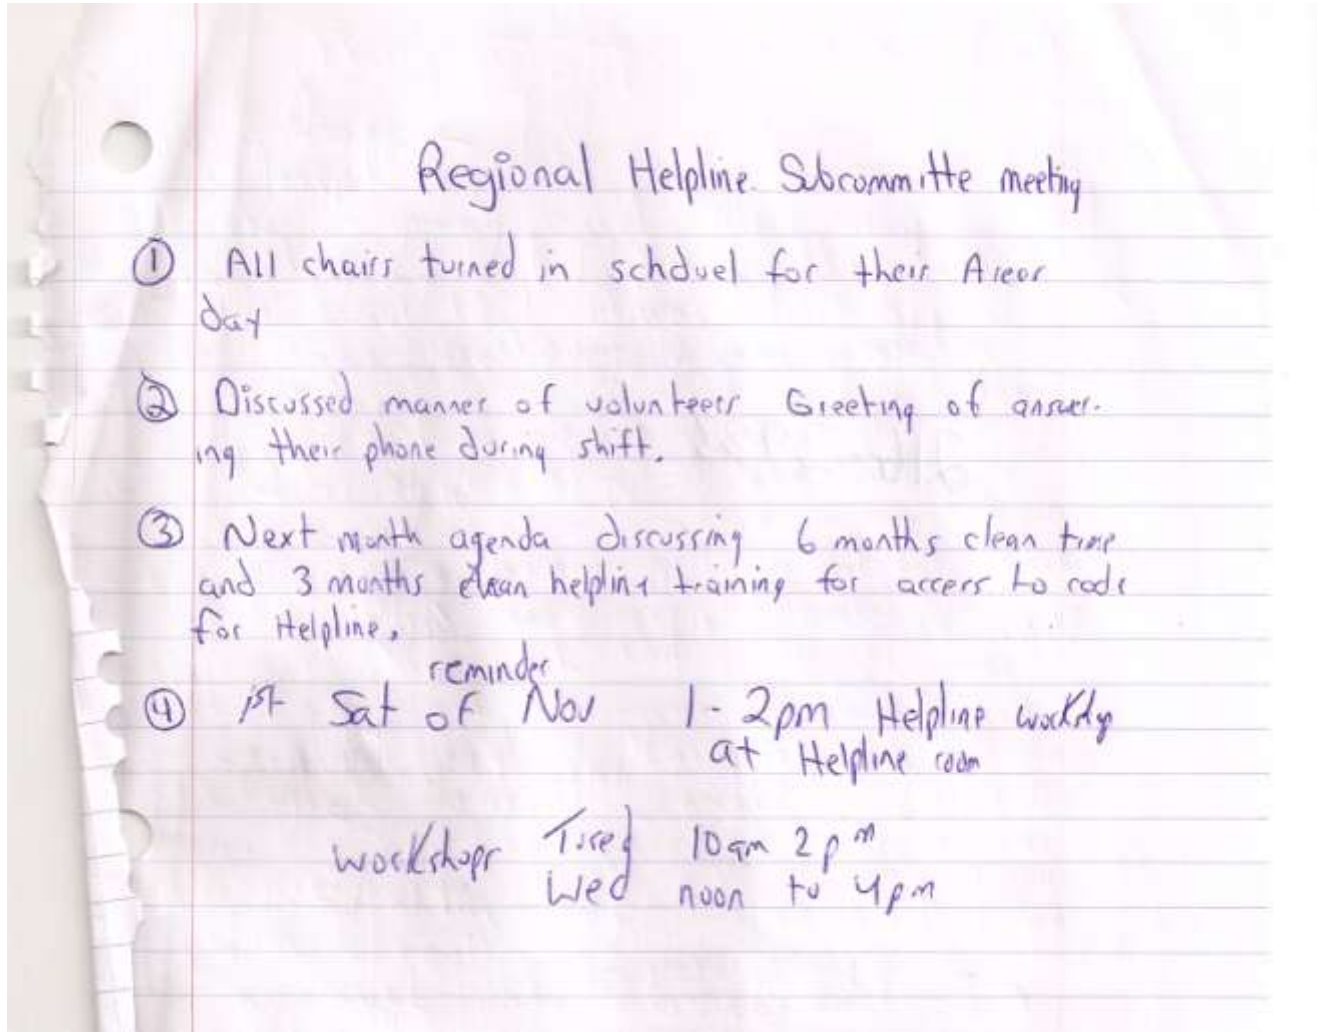 Regional Helpline Subcommitte meeting
① All chairs turned in schduel for their Area
day
② Discussed manner of volunteers Greeting of answer-
ing their phone during shift.
③ Next month agenda discussing 6 months clean time
and 3 months clean helpline training for access to code
for Helpline.
reminder
④ 1st Sat of Nov 1-2pm Helpline workshop
at Helpline room
workshops Tues 10am 2pm
Wed noon to 4pm